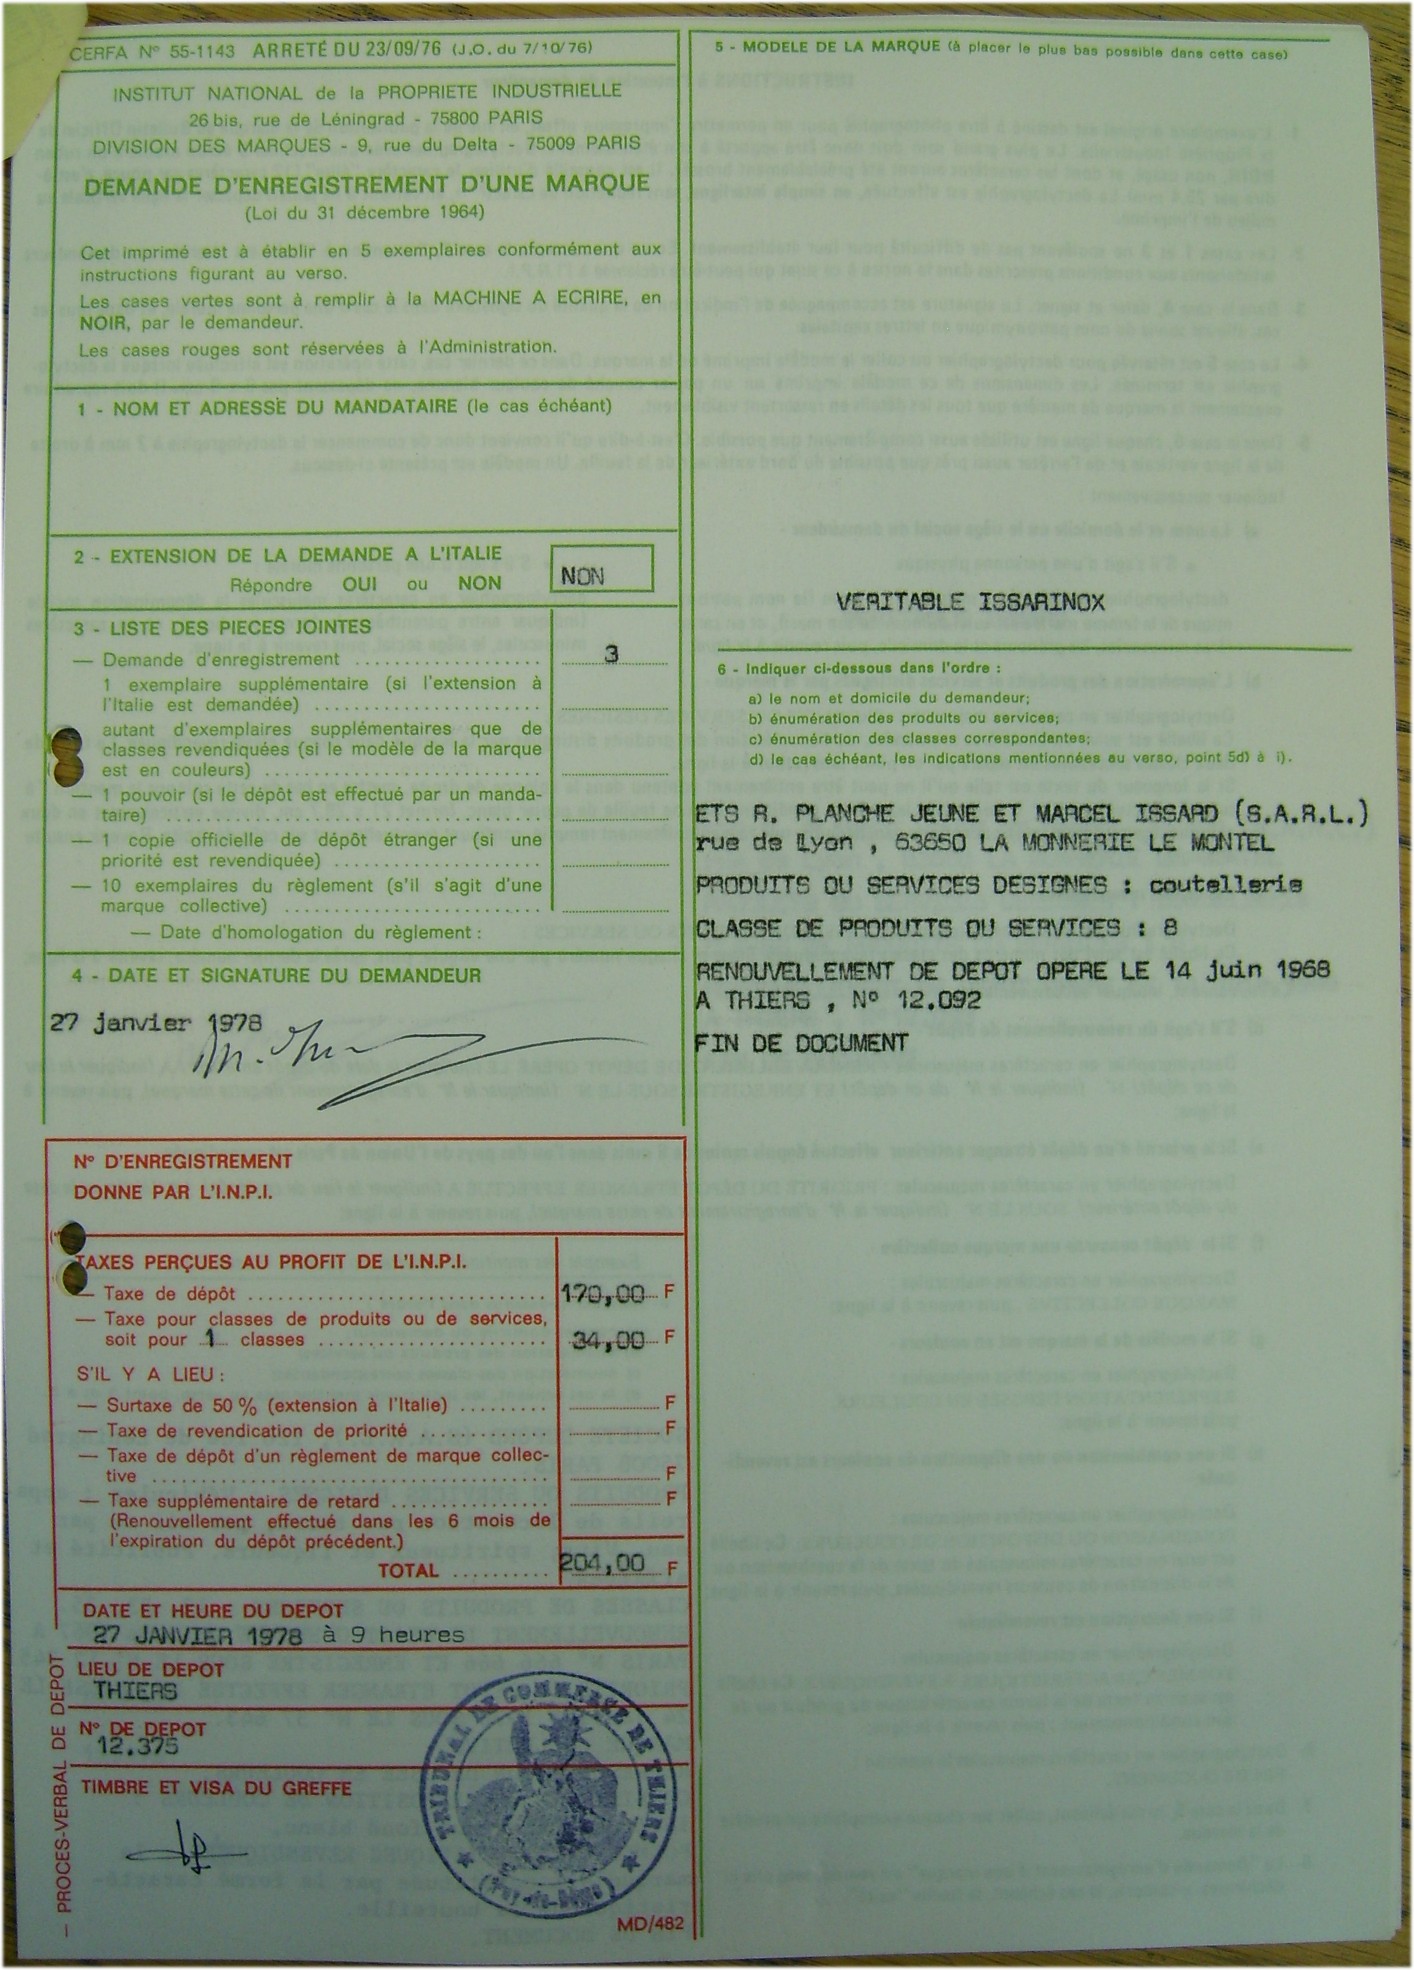 CERFA N° 55-1143 ARRETÉ DU 23/09/76 (J.O. du 7/10/76)
INSTITUT NATIONAL de la PROPRIETE INDUSTRIELLE
26 bis, rue de Léningrad - 75800 PARIS
DIVISION DES MARQUES - 9, rue du Delta - 75009 PARIS
DEMANDE D'ENREGISTREMENT D'UNE MARQUE
(Loi du 31 décembre 1964)
Cet imprimé est à établir en 5 exemplaires conformément aux
instructions figurant au verso.
Les cases vertes sont à remplir à la MACHINE A ECRIRE, en
NOIR, par le demandeur.
Les cases rouges sont réservées à l'Administration.
1 - NOM ET ADRESSE DU MANDATAIRE (le cas échéant)
2 - EXTENSION DE LA DEMANDE A L'ITALIE
Répondre OUI ou NON
NON
3 - LISTE DES PIECES JOINTES
— Demande d'enregistrement .................... 3
1 exemplaire supplémentaire (si l'extension à
l'Italie est demandée) ........................
autant d'exemplaires supplémentaires que de
classes revendiquées (si le modèle de la marque
est en couleurs) ..............................
— 1 pouvoir (si le dépôt est effectué par un manda-
taire) ........................................
— 1 copie officielle de dépôt étranger (si une
priorité est revendiquée) .....................
— 10 exemplaires du règlement (s'il s'agit d'une
marque collective) ............................
— Date d'homologation du règlement :
4 - DATE ET SIGNATURE DU DEMANDEUR
27 janvier 1978
N° D'ENREGISTREMENT
DONNE PAR L'I.N.P.I.
TAXES PERÇUES AU PROFIT DE L'I.N.P.I.
— Taxe de dépôt .............................. 170,00 F
— Taxe pour classes de produits ou de services,
soit pour 1 classes .................... 34,00 F
S'IL Y A LIEU :
— Surtaxe de 50 % (extension à l'Italie) ......... F
— Taxe de revendication de priorité ............. F
— Taxe de dépôt d'un règlement de marque collec-
tive ........................................ F
— Taxe supplémentaire de retard ................ F
(Renouvellement effectué dans les 6 mois de
l'expiration du dépôt précédent.)
TOTAL .......... 204,00 F
DATE ET HEURE DU DEPOT
27 JANVIER 1978 à 9 heures
LIEU DE DEPOT
THIERS
N° DE DEPOT
12.375
TIMBRE ET VISA DU GREFFE
— PROCES-VERBAL DE DEPOT
TRIBUNAL DE COMMERCE DE THIERS
(Puy-de-Dôme)
MD/482
5 - MODELE DE LA MARQUE (à placer le plus bas possible dans cette case)
VERITABLE ISSARINOX
6 - Indiquer ci-dessous dans l'ordre :
a) le nom et domicile du demandeur;
b) énumération des produits ou services;
c) énumération des classes correspondantes;
d) le cas échéant, les indications mentionnées au verso, point 5d) à i).
ETS R. PLANCHE JEUNE ET MARCEL ISSARD (S.A.R.L.)
rue de Lyon , 63650 LA MONNERIE LE MONTEL
PRODUITS OU SERVICES DESIGNES : coutellerie
CLASSE DE PRODUITS OU SERVICES : 8
RENOUVELLEMENT DE DEPOT OPERE LE 14 juin 1968
A THIERS , N° 12.092
FIN DE DOCUMENT